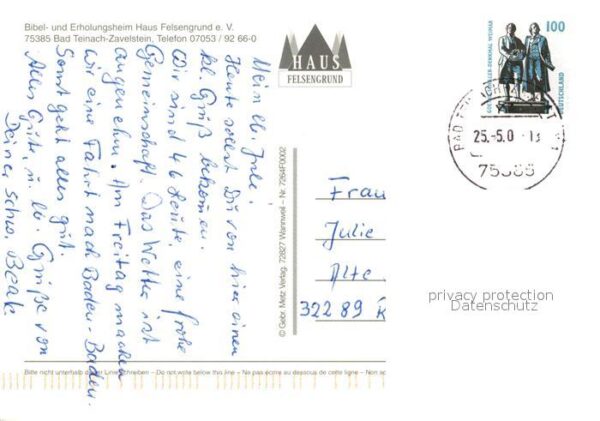 Bibel- und Erholungsheim Haus Felsengrund e. V.
75385 Bad Teinach-Zavelstein, Telefon 07053 / 92 66-0
HAUS
FELSENGRUND
Mein lb. Jule!
Heute sollst Du von hier einen
kl. Gruß bekommen.
Wir sind 46 Leute eine frohe
Gemeinschaft. Das Wetter ist
angenehm. Am Freitag machen
wir eine Fahrt nach Baden-Baden.
Sonst geht alles gut.
Alles Gute, u. lb. Grüße von
Deiner Schw. Beate
© Gebr. Metz Verlag, 72827 Wannweil – Nr. 7264F0002
100
DEUTSCHLAND
25.-5.0
75385
Frau
Julie
Alte
32289
privacy protection
Datenschutz
Bitte nicht unterhalb dieser Linie schreiben – Do not write below this line – Na pas écire au dessous de cette ligne – Non